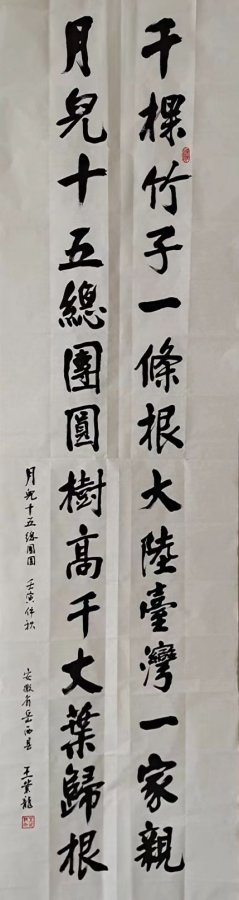 千棵竹子一條根大陸臺灣一家親
月兒十五總團圓樹高千丈葉歸根
月兒十五總團圓 壬寅仲秋 安徽省岳西县 王業龍